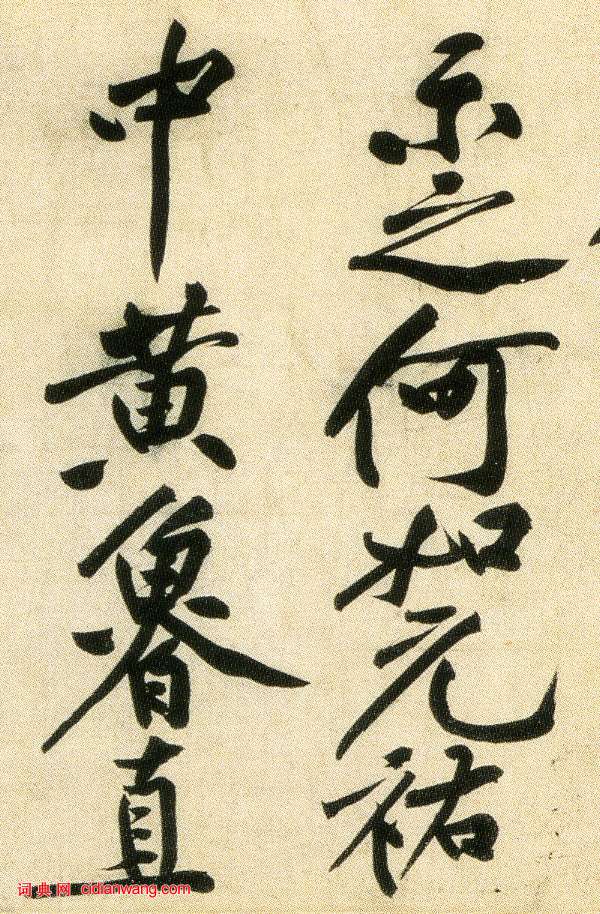 示之何如元祐
中黄魯直
词典网 cidianwang.com